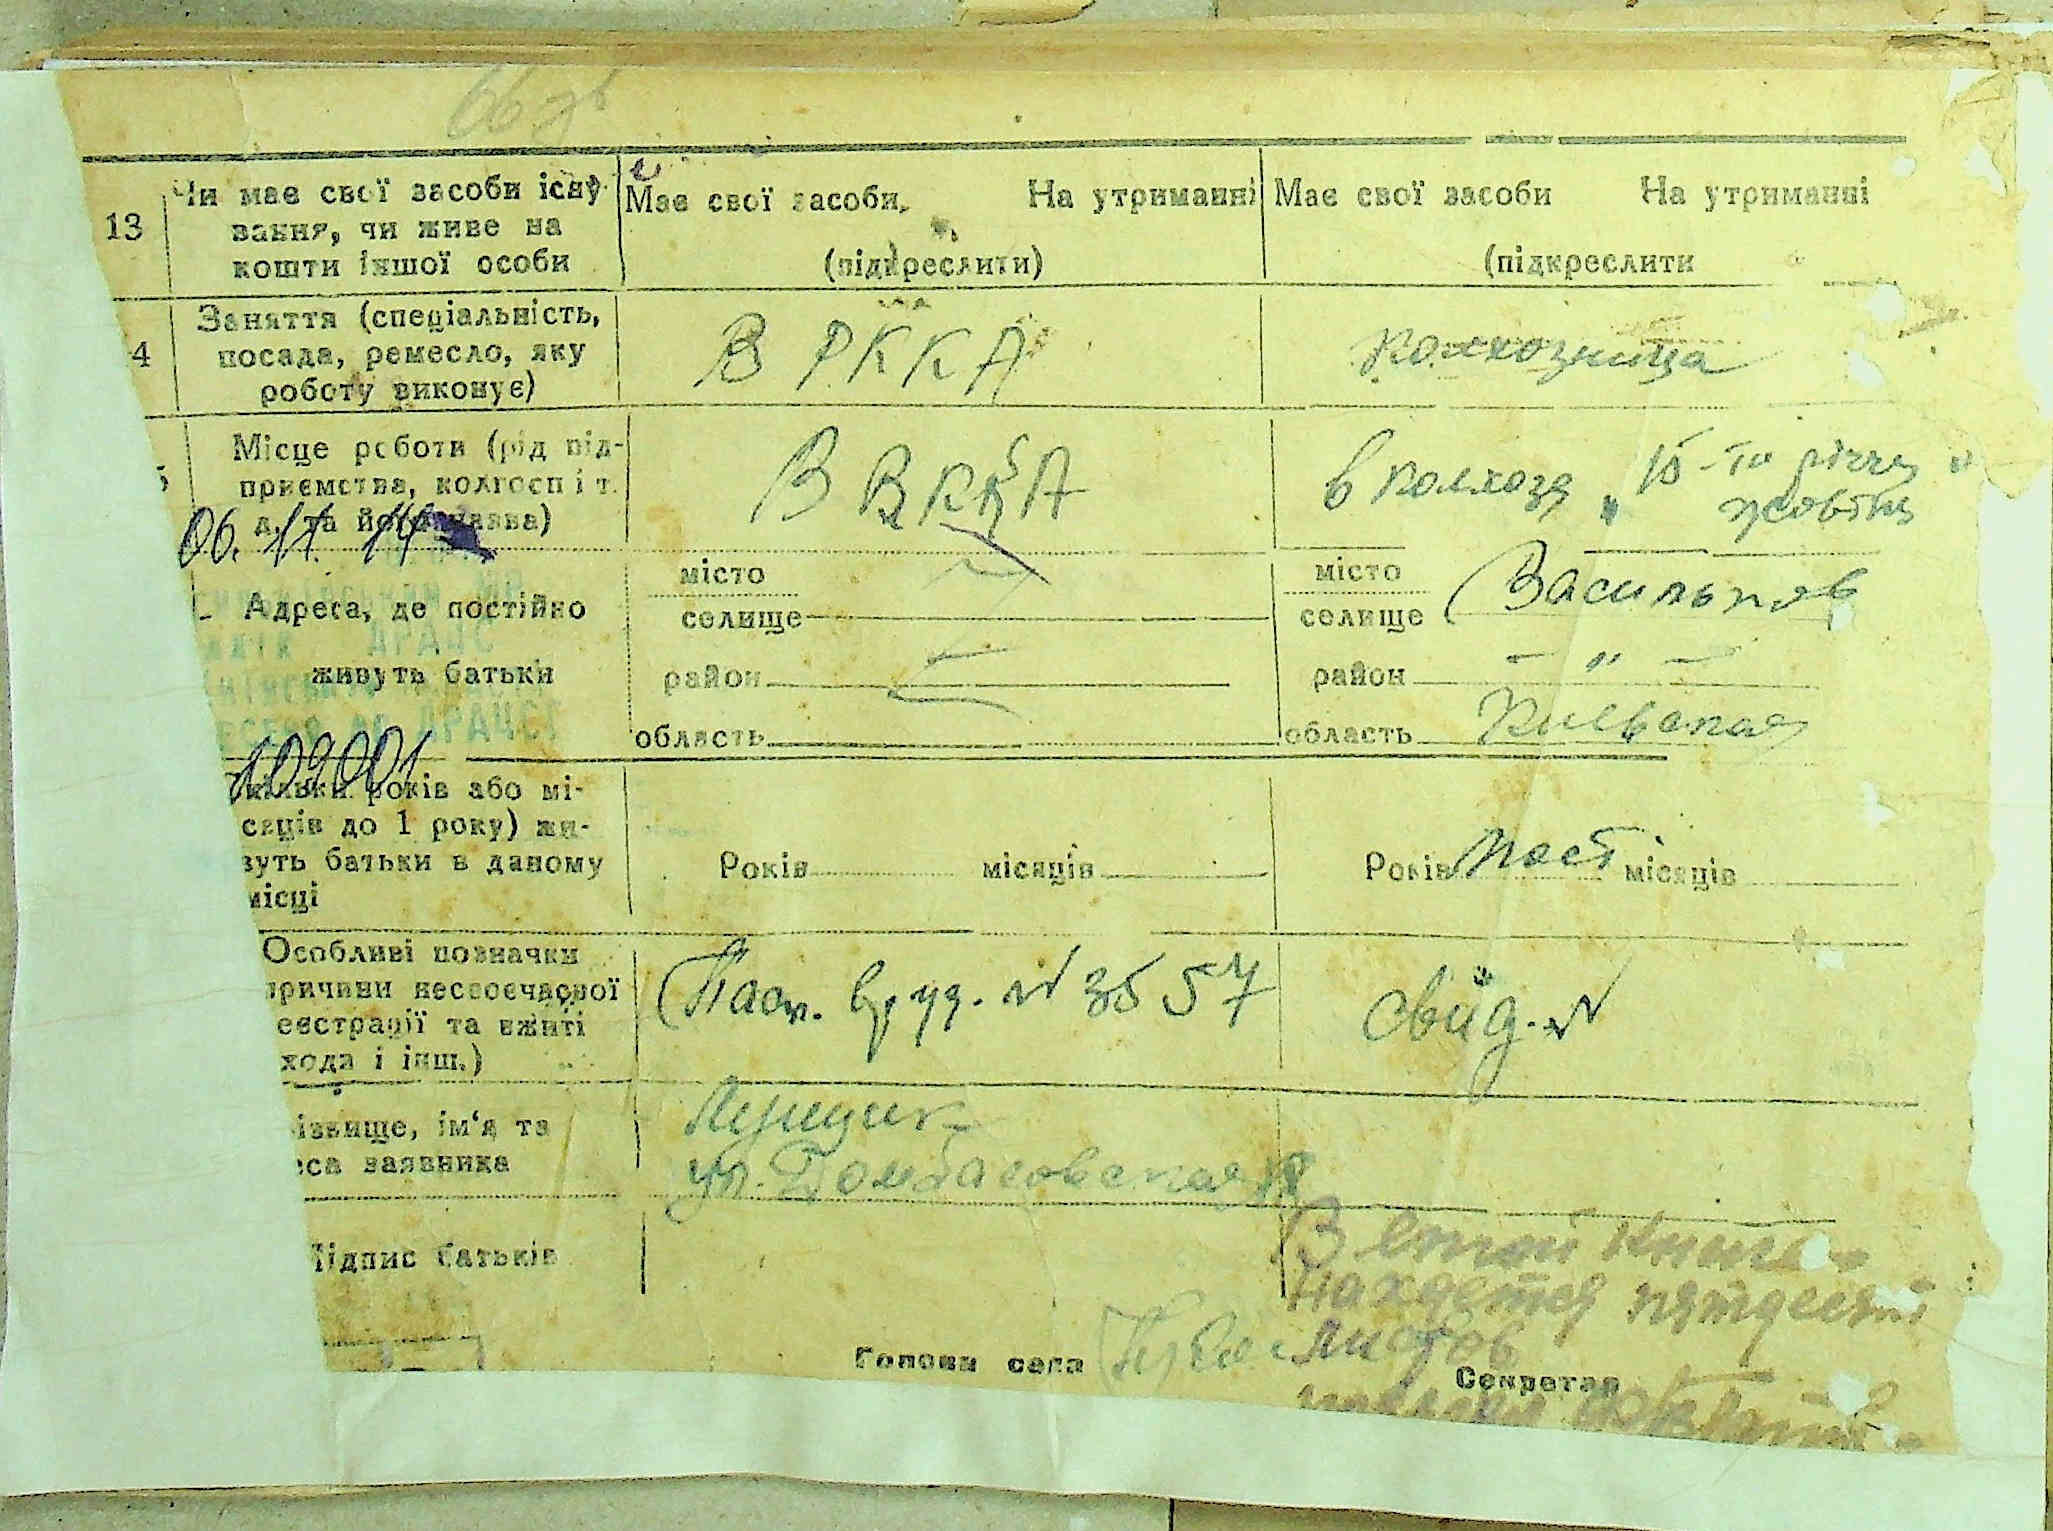 13 Чи має свої засоби існу
вання, чи живе на
кошти іншої особи
Має свої засоби, На утриманні
(підкреслити)
Має свої засоби На утриманні
(підкреслити
4 Заняття (спеціальність,
посада, ремесло, яку
роботу виконує)
В РККА
колхозница
Місце роботи (рід під-
приємства, колгосп і т.
д. та його назва)
06. 11.
в колхозя „ 15-ти річчя "
жовтня
Адреса, де постійно
живуть батьки
місто
селище
район
область
місто
селище Васильков
район — " —
область Киевская
109001
років або мі-
сяців до 1 року) жи-
вуть батьки в даному
місці
Років місяців
Років пост місяців
Особливі позначки
причини несвоєчасної
еєстрації та вжиті
хода і інш.)
Пасп. вр уд. № 3557
Свид. №
ізвище, ім'я та
еса заявника
ул.
Підпис батьків
В етой книге
находется пятдесят
листов
Голова села
Секретар